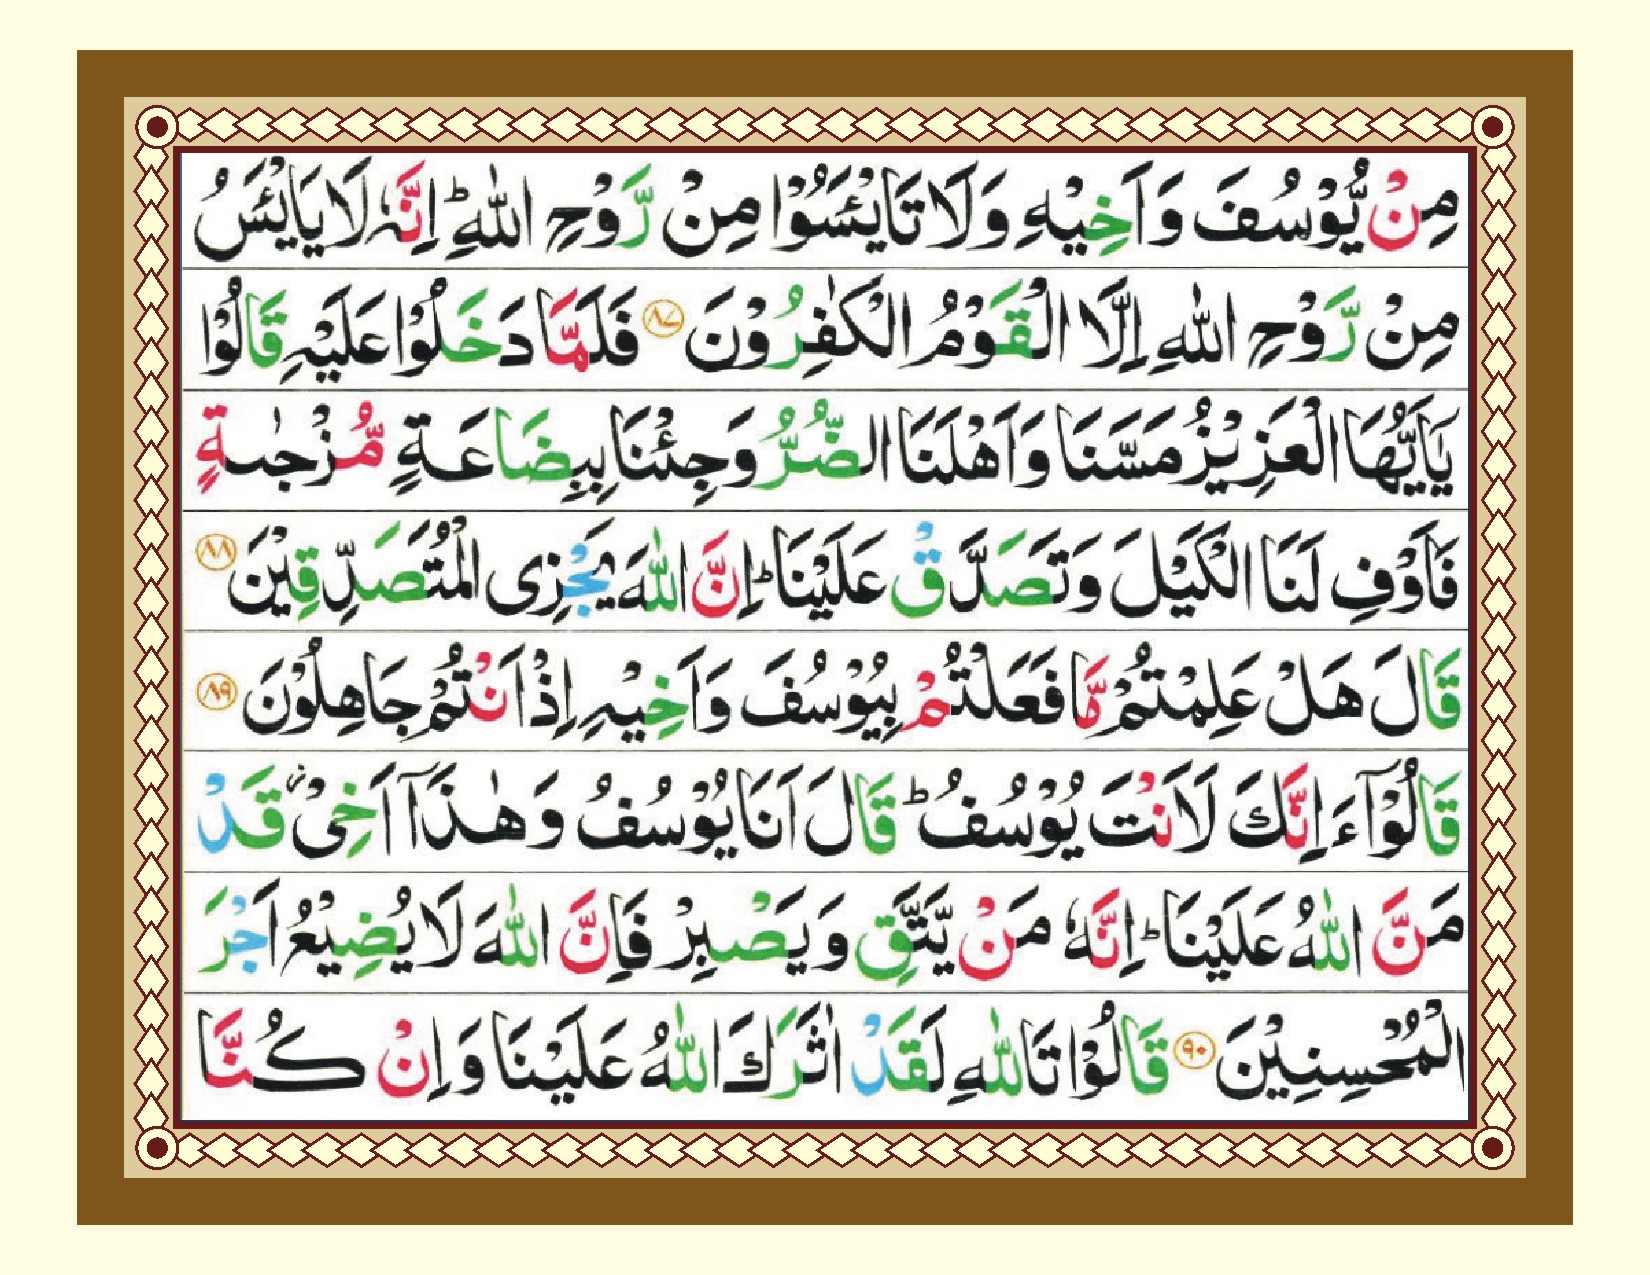 مِنْ يُّوْسُفَ وَاَخِيْهِ وَلَا تَايْـَٔسُوْا مِنْ رَّوْحِ اللّٰهِ ؕ اِنَّهٗ لَا يَايْـَٔسُ
مِنْ رَّوْحِ اللّٰهِ اِلَّا الْقَوْمُ الْكٰفِرُوْنَ ﴿۸۷﴾ فَلَمَّا دَخَلُوْا عَلَيْهِ قَالُوْا
يٰۤاَيُّهَا الْعَزِيْزُ مَسَّنَا وَاَهْلَنَا الضُّرُّ وَجِئْنَا بِبِضَاعَةٍ مُّزْجٰىةٍ
فَاَوْفِ لَنَا الْكَيْلَ وَتَصَدَّقْ عَلَيْنَا ؕ اِنَّ اللّٰهَ يَجْزِى الْمُتَصَدِّقِيْنَ ﴿۸۸﴾
قَالَ هَلْ عَلِمْتُمْ مَّا فَعَلْتُمْ بِيُوْسُفَ وَاَخِيْهِ اِذْ اَنْتُمْ جَاهِلُوْنَ ﴿۸۹﴾
قَالُوْۤا ءَاِنَّكَ لَاَنْتَ يُوْسُفُ ؕ قَالَ اَنَا يُوْسُفُ وَهٰذَاۤ اَخِىْ ز قَدْ
مَنَّ اللّٰهُ عَلَيْنَا ؕ اِنَّهٗ مَنْ يَّتَّقِ وَيَصْبِرْ فَاِنَّ اللّٰهَ لَا يُضِيْعُ اَجْرَ
الْمُحْسِنِيْنَ ﴿۹۰﴾ قَالُوْا تَاللّٰهِ لَقَدْ اٰثَرَكَ اللّٰهُ عَلَيْنَا وَاِنْ كُنَّا